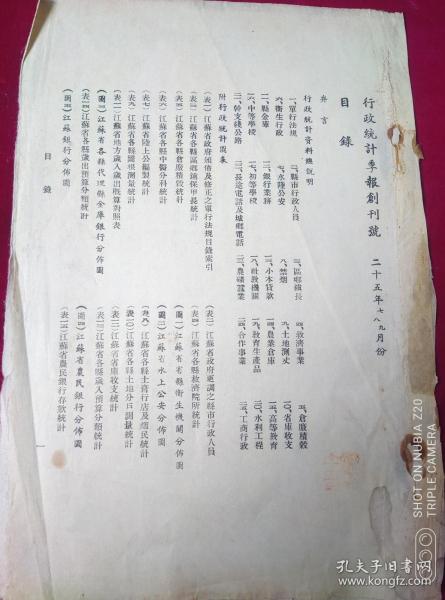 行政統計季報創刊號　二十五年七八九月份
目錄
弁言
行政統計資料總說明
一、單行法規　二、縣市行政人員　三、區鄉鎮長　四、救濟事業　五、倉廒積穀
六、衛生行政　七、水陸公安　八、禁烟　九、土地測丈　一〇、省庫收支
一一、縣金庫　一二、銀行業務　一三、小本貸款　一四、農業倉庫　一五、高等教育
一六、中等學校　一七、初等學校　一八、社教機關　一九、教育生產品　二〇、水利工程
二一、幹支綫公路　二二、長途電話及城鄉電話　二三、農礦蠶業　二四、合作事業　二五、工商行政
附行政統計圖表
(表一)江蘇省政府頒佈及修正之單行法規目錄索引　(表二)江蘇省政府更調之縣市行政人員
(表三)江蘇省各縣區鄉鎮保甲長統計　(表四)江蘇省各縣救濟院所統計
(表五)江蘇省各縣倉廒積穀統計　(圖一)江蘇省各縣衛生機關分佈圖
(表六)江蘇省各縣中醫分科統計　(圖二)江蘇省水上公安分佈圖
(表七)江蘇省陸上公安編製統計　(表八)江蘇省各縣土膏行店及烟民統計
(表九)江蘇省各縣圖根測量統計　(表一〇)江蘇省各縣土地分戶測量統計
(表一一)江蘇省地方歲入歲出概算對照表　(表一二)江蘇省省庫收支統計
(圖三)江蘇省各縣代理縣金庫銀行分佈圖　(表一三)江蘇省各縣歲入預算分類統計
(表一四)江蘇省各縣歲出預算分類統計　(圖四)江蘇省農民銀行分佈圖
(圖五)江蘇銀行分佈圖　(表一五)江蘇省農民銀行存款統計
目錄
一
SHOT ON NUBIA Z20
TRIPLE CAMERA
孔夫子旧书网
kongfz.com